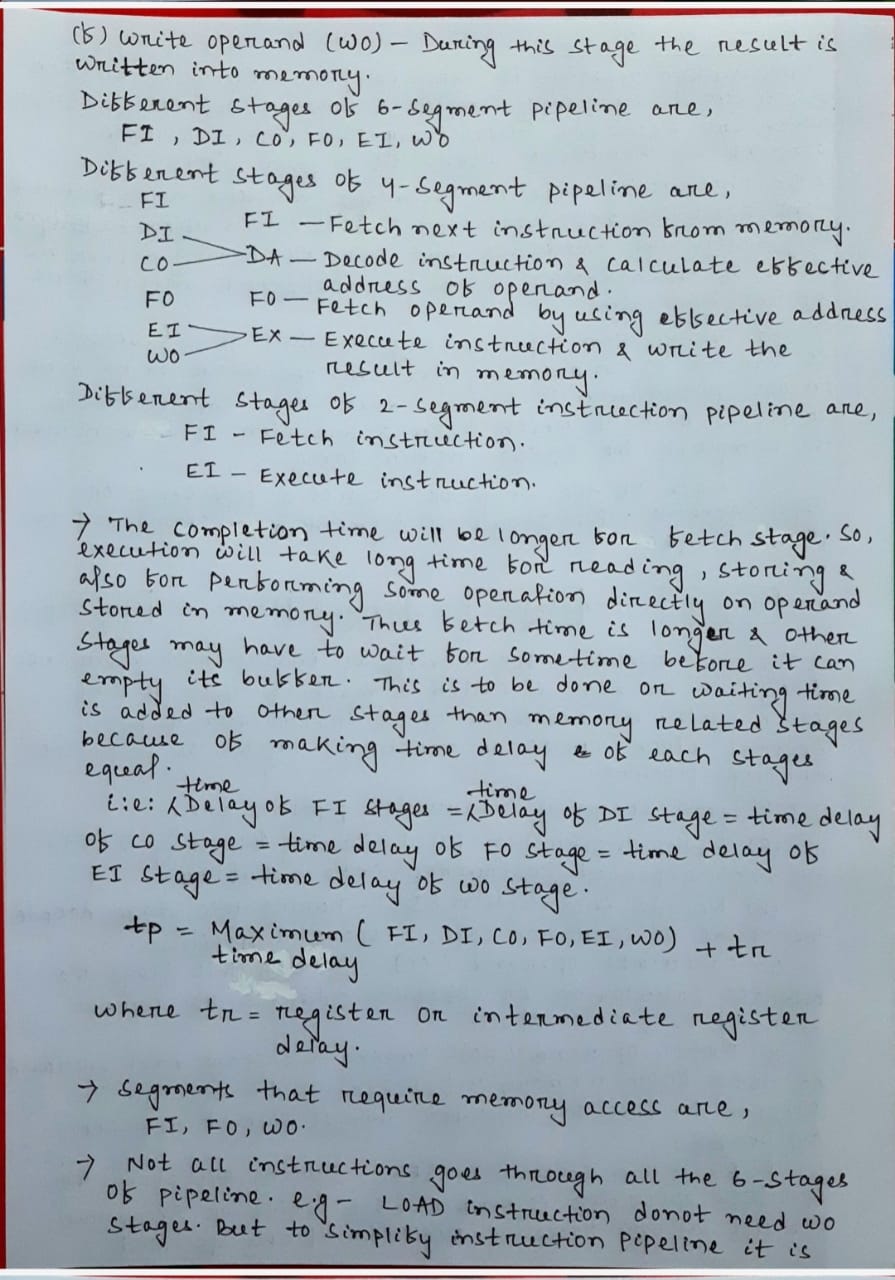 (f) Write operand (WO) – During this stage the result is
written into memory.
Different stages of 6-segment pipeline are,
FI , DI, CO, FO, EI, WO
Different stages of 4-segment pipeline are,
FI
FI – Fetch next instruction from memory.
DI
CO DA – Decode instruction & calculate effective
address of operand.
FO FO – Fetch operand by using effective address
EI EX – Execute instruction & write the
WO
result in memory.
Different stages of 2-segment instruction pipeline are,
FI – Fetch instruction.
EI – Execute instruction.
→ The completion time will be longer for fetch stage. So,
execution will take long time for reading, storing &
also for performing some operation directly on operand
stored in memory. Thus fetch time is longer & other
stages may have to wait for sometime before it can
empty its buffer. This is to be done or waiting time
is added to other stages than memory related stages
because of making time delay of each stages
equal.
i.e: time Delay of FI stages = time Delay of DI stage = time delay
of CO stage = time delay of FO stage = time delay of
EI stage = time delay of WO stage.
tp = Maximum ( FI, DI, CO, FO, EI, WO) + tr
time delay
where tr = register or intermediate register
delay.
→ Segments that require memory access are,
FI, FO, WO.
→ Not all instructions goes through all the 6-stages
of pipeline. e.g – LOAD instruction donot need WO
stages. But to simplify instruction pipeline it is